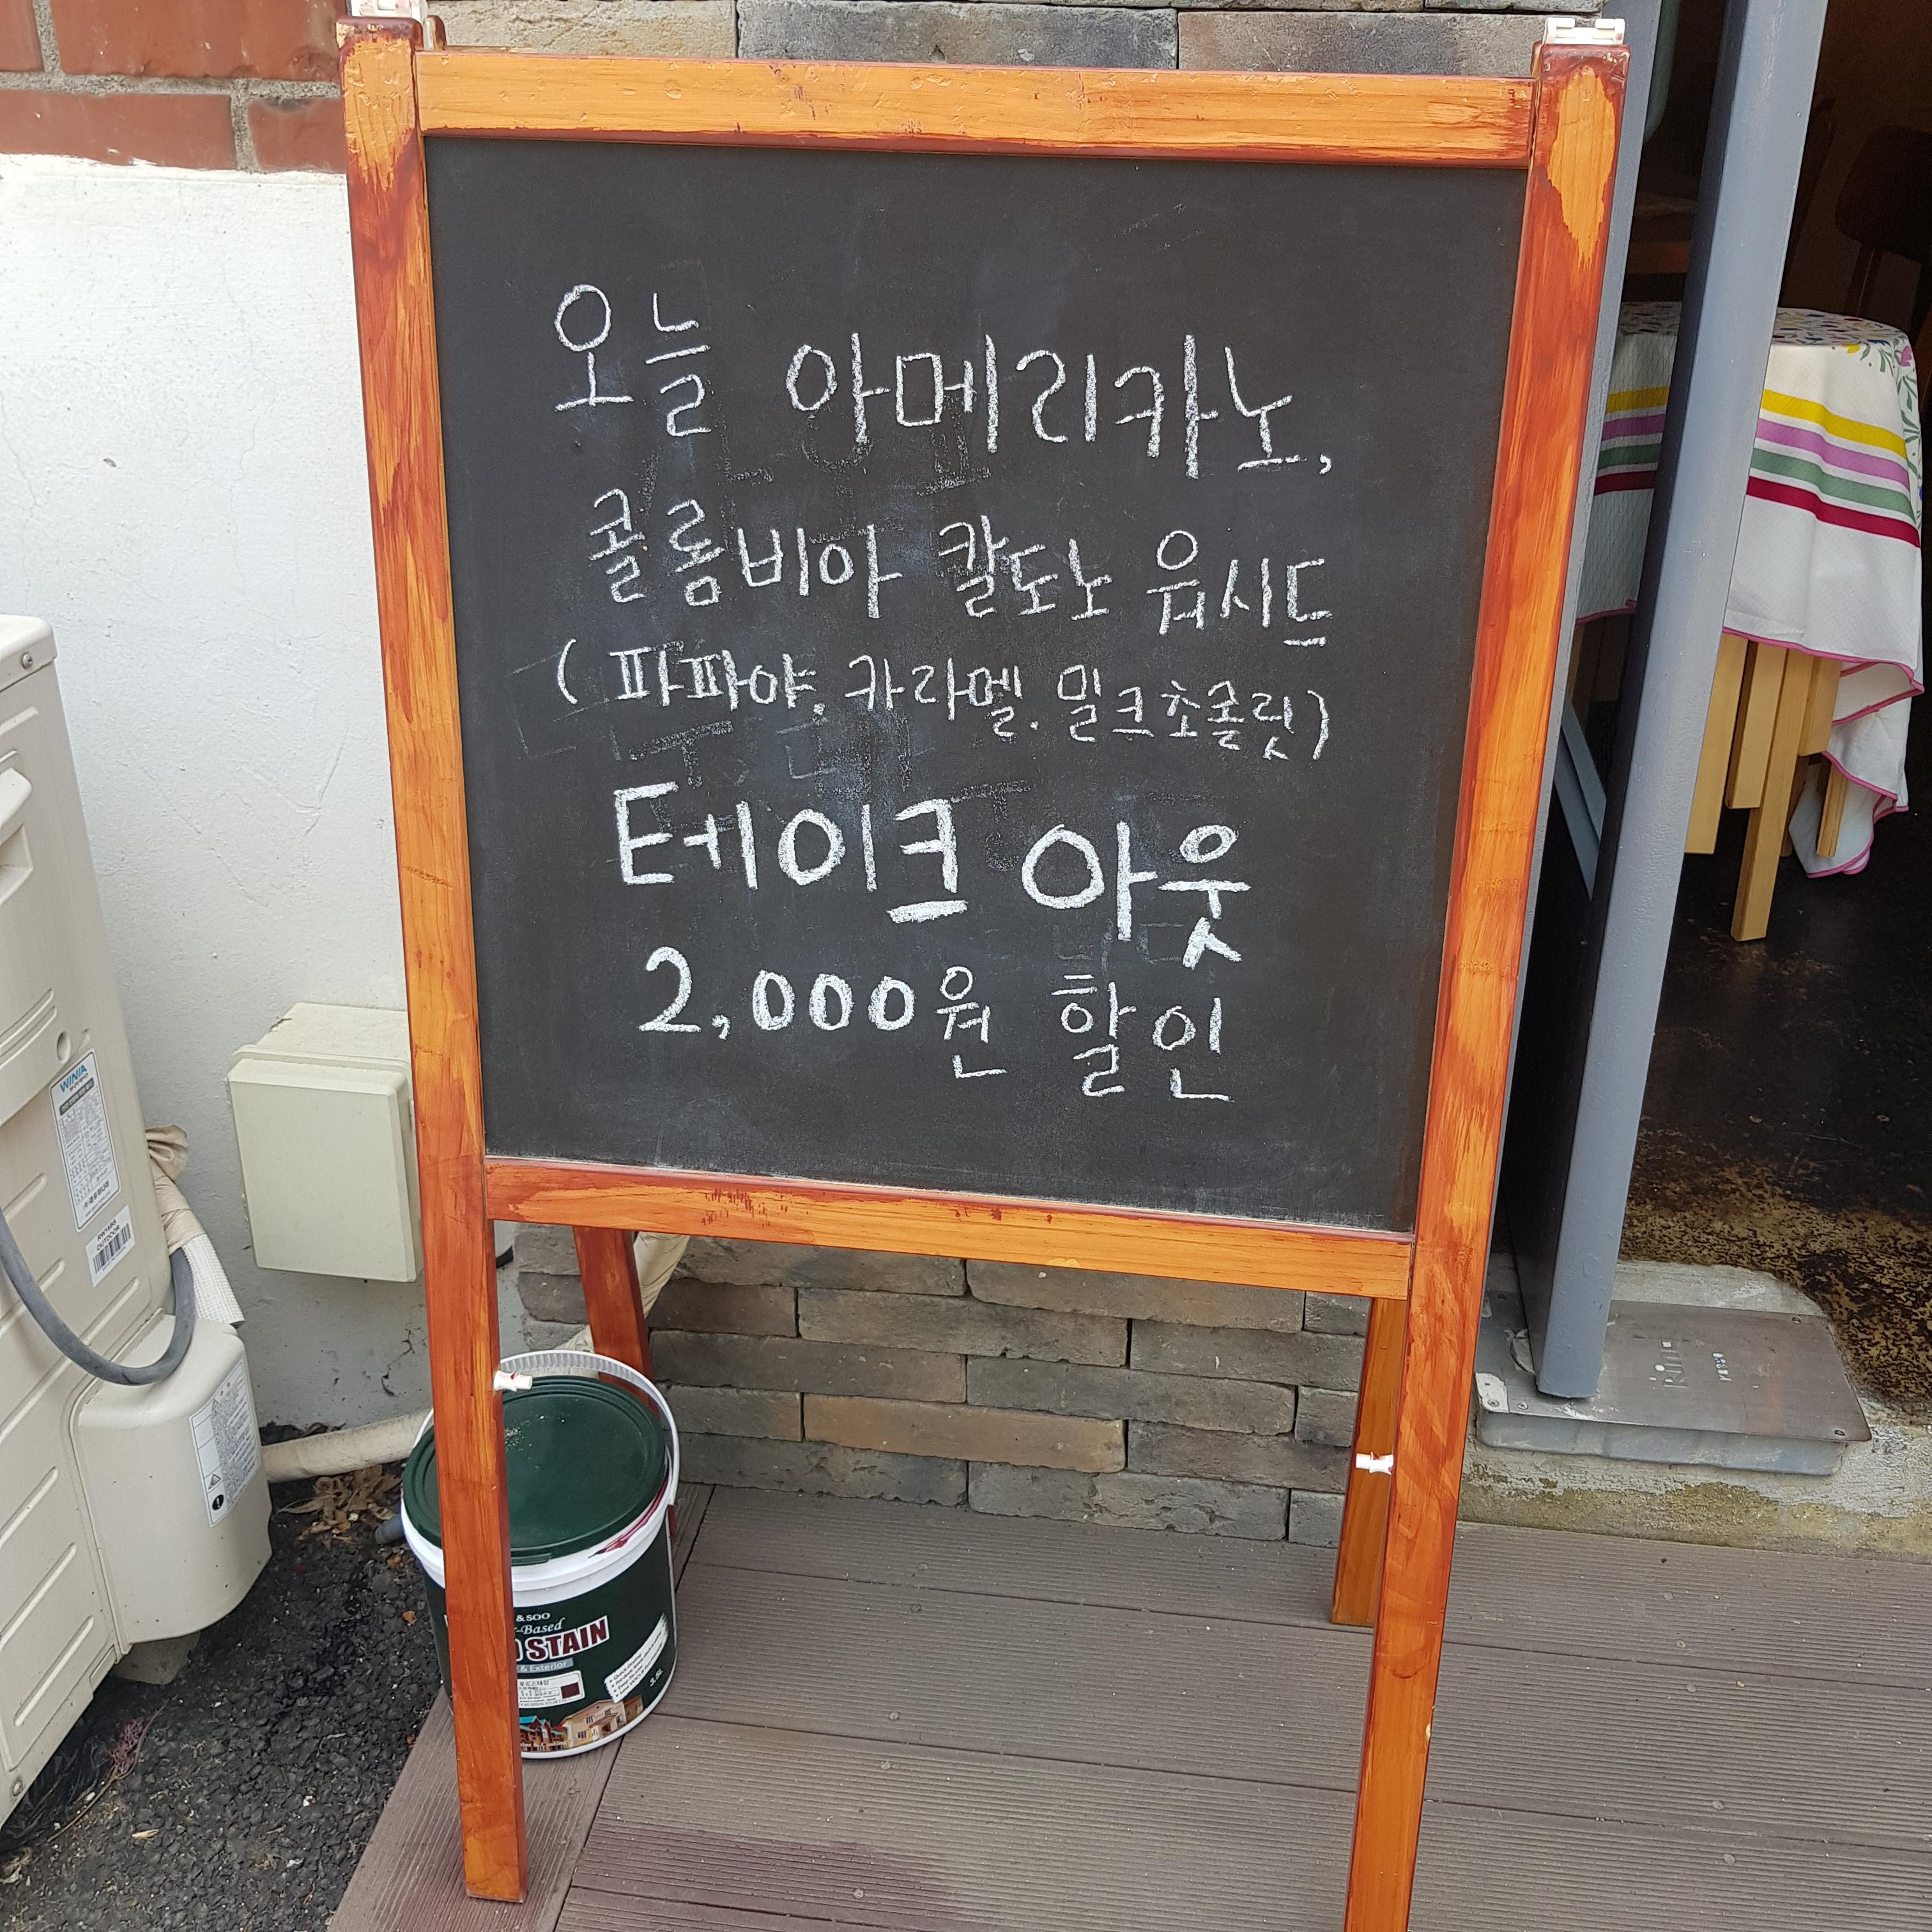 오늘 아메리카노,
콜롬비아 칼도노 워시드
(파파야. 카라멜. 밀크초콜릿)
테이크 아웃
2,000원 할인
WINIA
OUTDOOR
&SOO
-Based
STAIN
& Exterior
3.5L